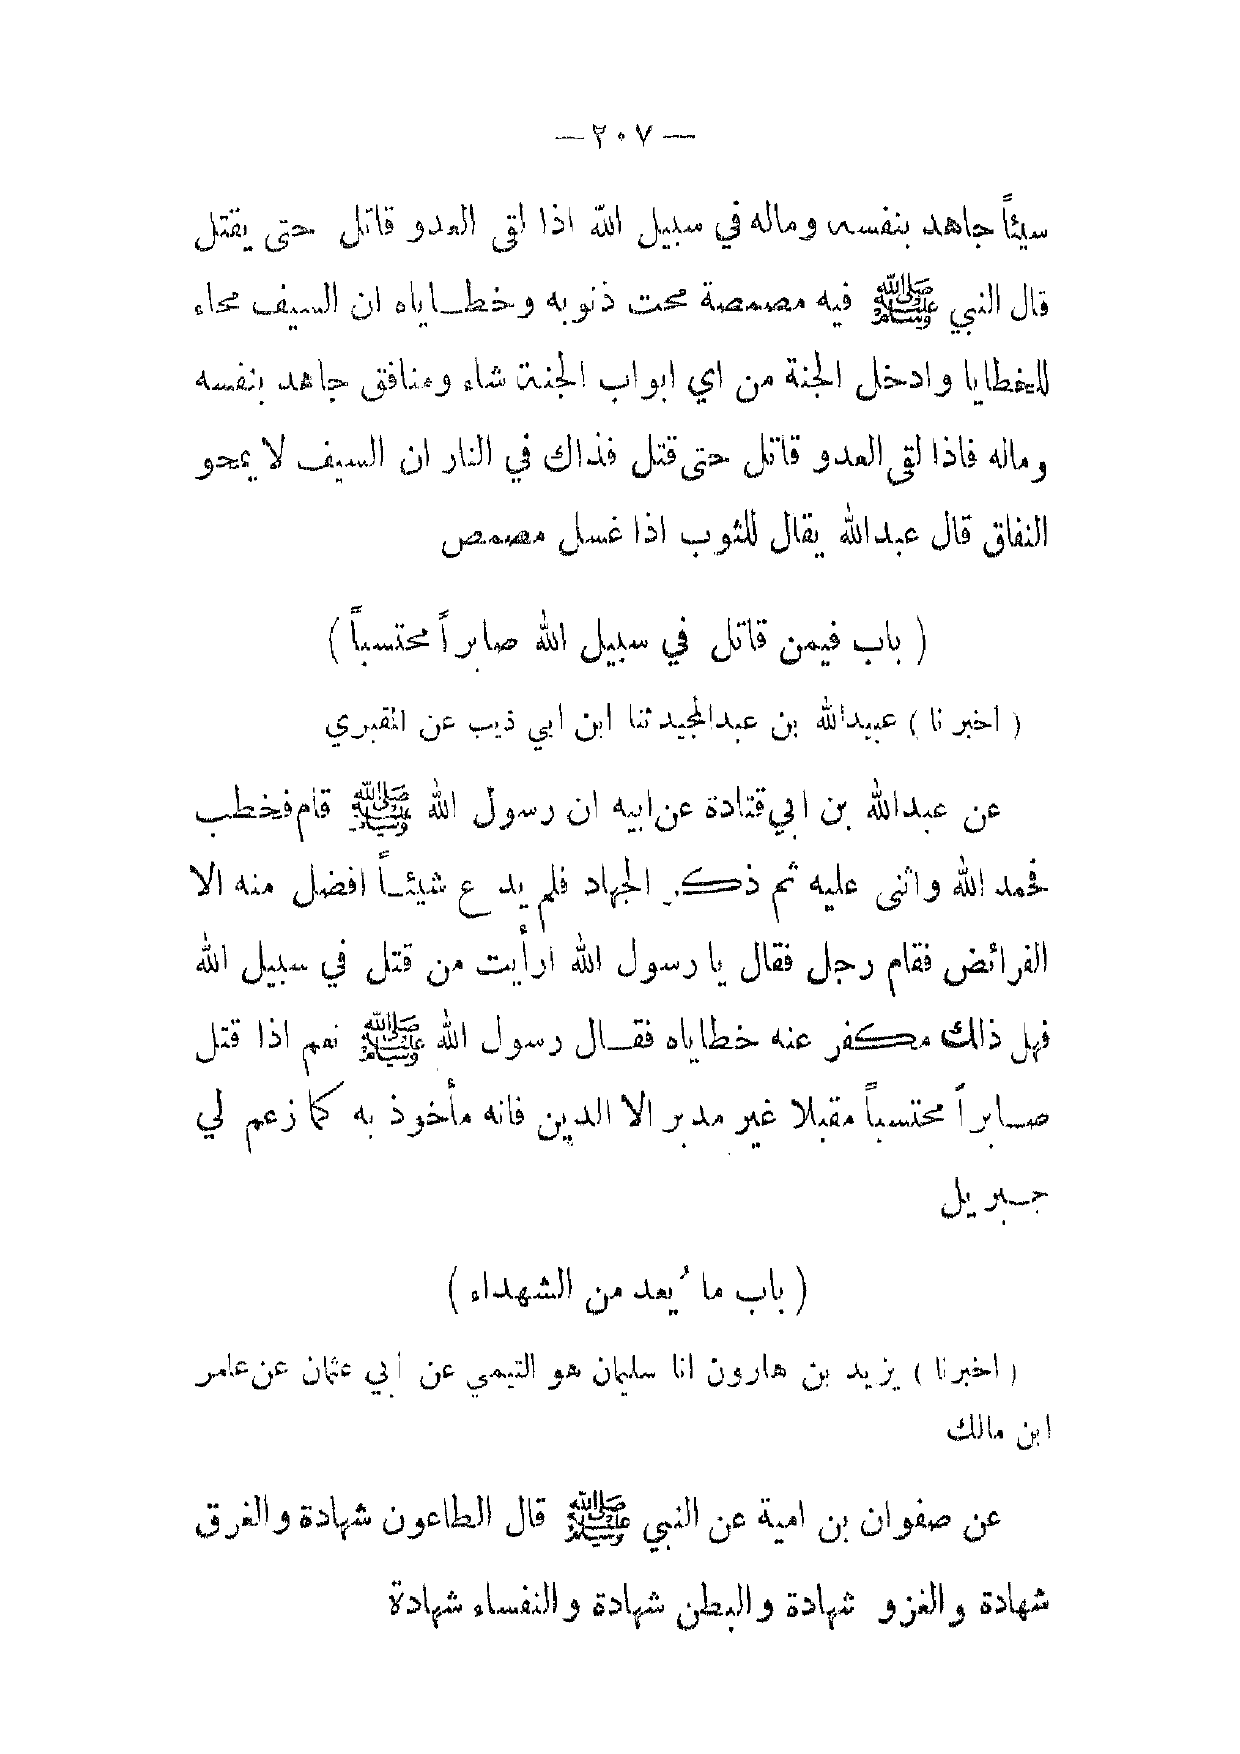 — ٢٠٧ —
سيئاً جاهد بنفسه وماله في سبيل الله اذا لقى العدو قاتل حتى يقتل
قال النبي ﷺ فيه مصمصة محت ذنوبه وخطـاياه ان السيف محاء
للخطايا وادخل الجنة من اي ابواب الجنة شاء ومنافق جاهد بنفسه
وماله فاذا لقى العدو قاتل حتى قتل فذاك في النار ان السيف لا يمحو
النفاق قال عبدالله يقال للثوب اذا غسل مصمص
( باب فيمن قاتل في سبيل الله صابراً محتسباً )
( اخبرنا ) عبيدالله بن عبدالمجيد ثنا ابن ابي ذيب عن المقبري
عن عبدالله بن ابي قتادة عن ابيه ان رسول الله ﷺ قام فخطب
فحمد الله واثنى عليه ثم ذكر الجهاد فلم يدع شيئـاً افضل منه الا
الفرائض فقام رجل فقال يا رسول الله ارأيت من قتل في سبيل الله
فهل ذلك مكفر عنه خطاياه فقـال رسول الله ﷺ نعم اذا قتل
صـابراً محتسباً مقبلا غير مدبر الا الدين فانه مأخوذ به كما زعم لي
جـبريل
( باب ما يُعد من الشهداء )
( اخبرنا ) يزيد بن هارون انا سليمان هو التيمي عن ابي عثمان عن عامر
ابن مالك
عن صفوان بن امية عن النبي ﷺ قال الطاعون شهادة والغرق
شهادة والغزو شهادة والبطن شهادة والنفساء شهادة